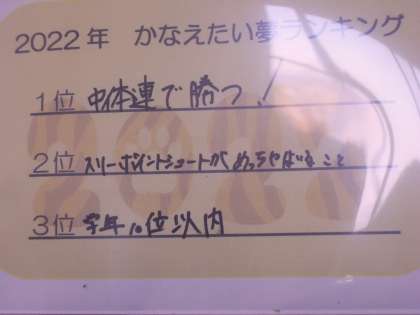 2022年 かなえたい夢ランキング
1位 中体連で勝つ!
2位 スリーポイントシュートがめっちゃはいること
3位 学年10位以内